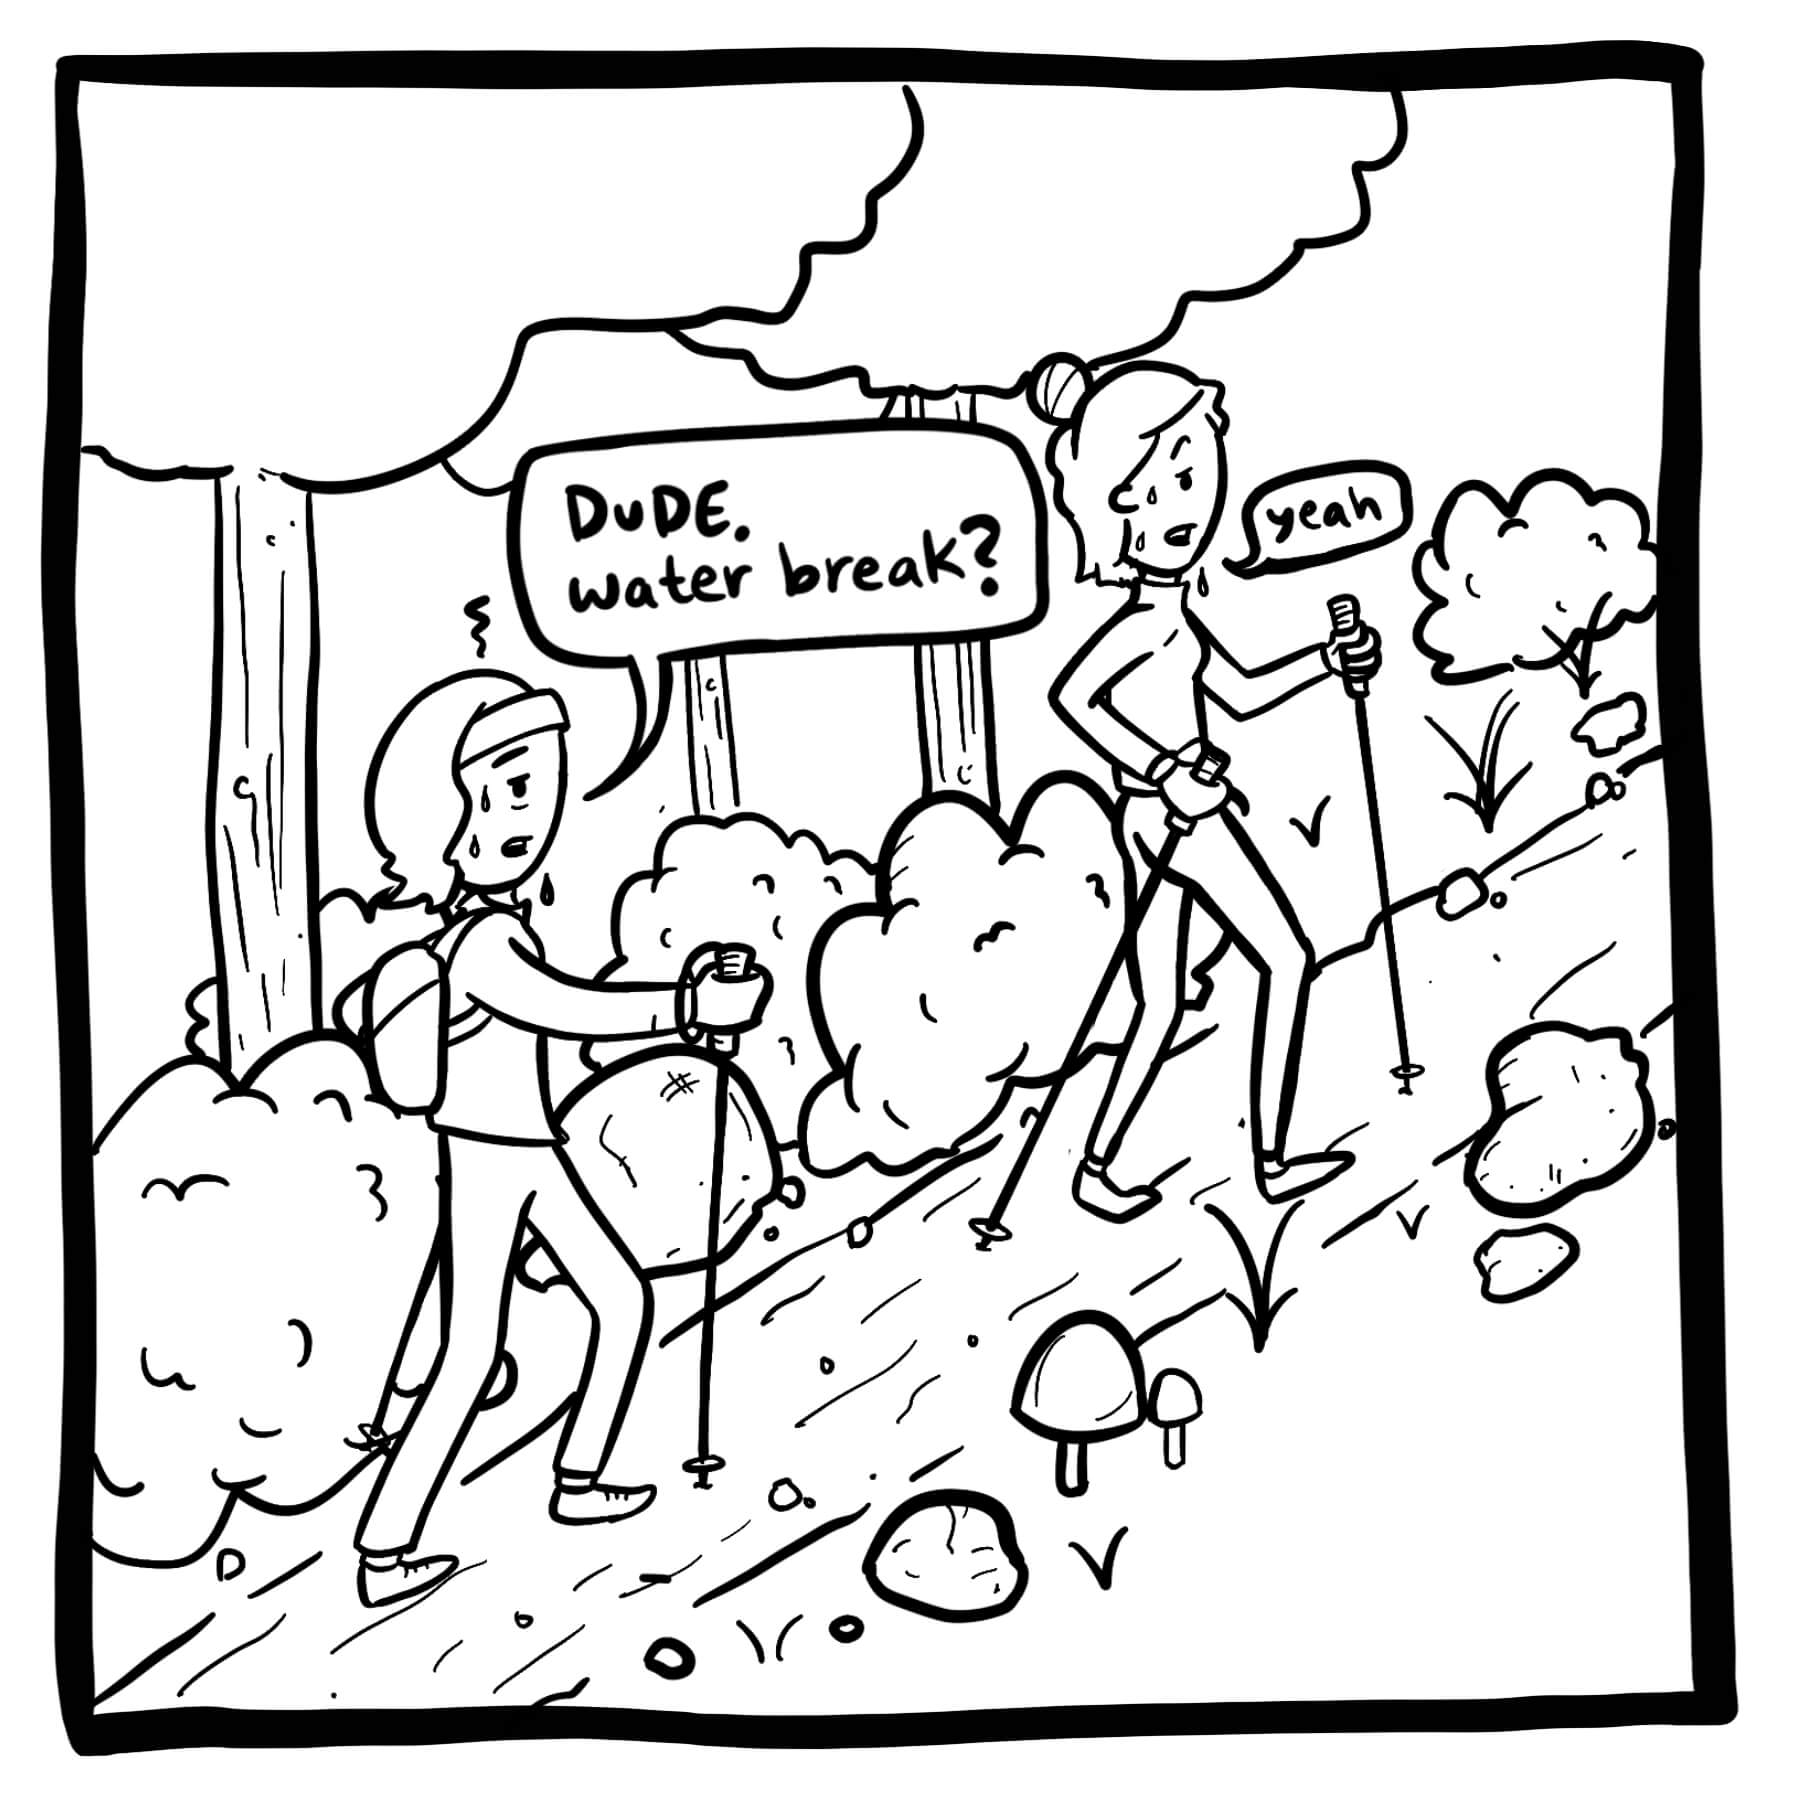 DuDE.
water break?
yeah